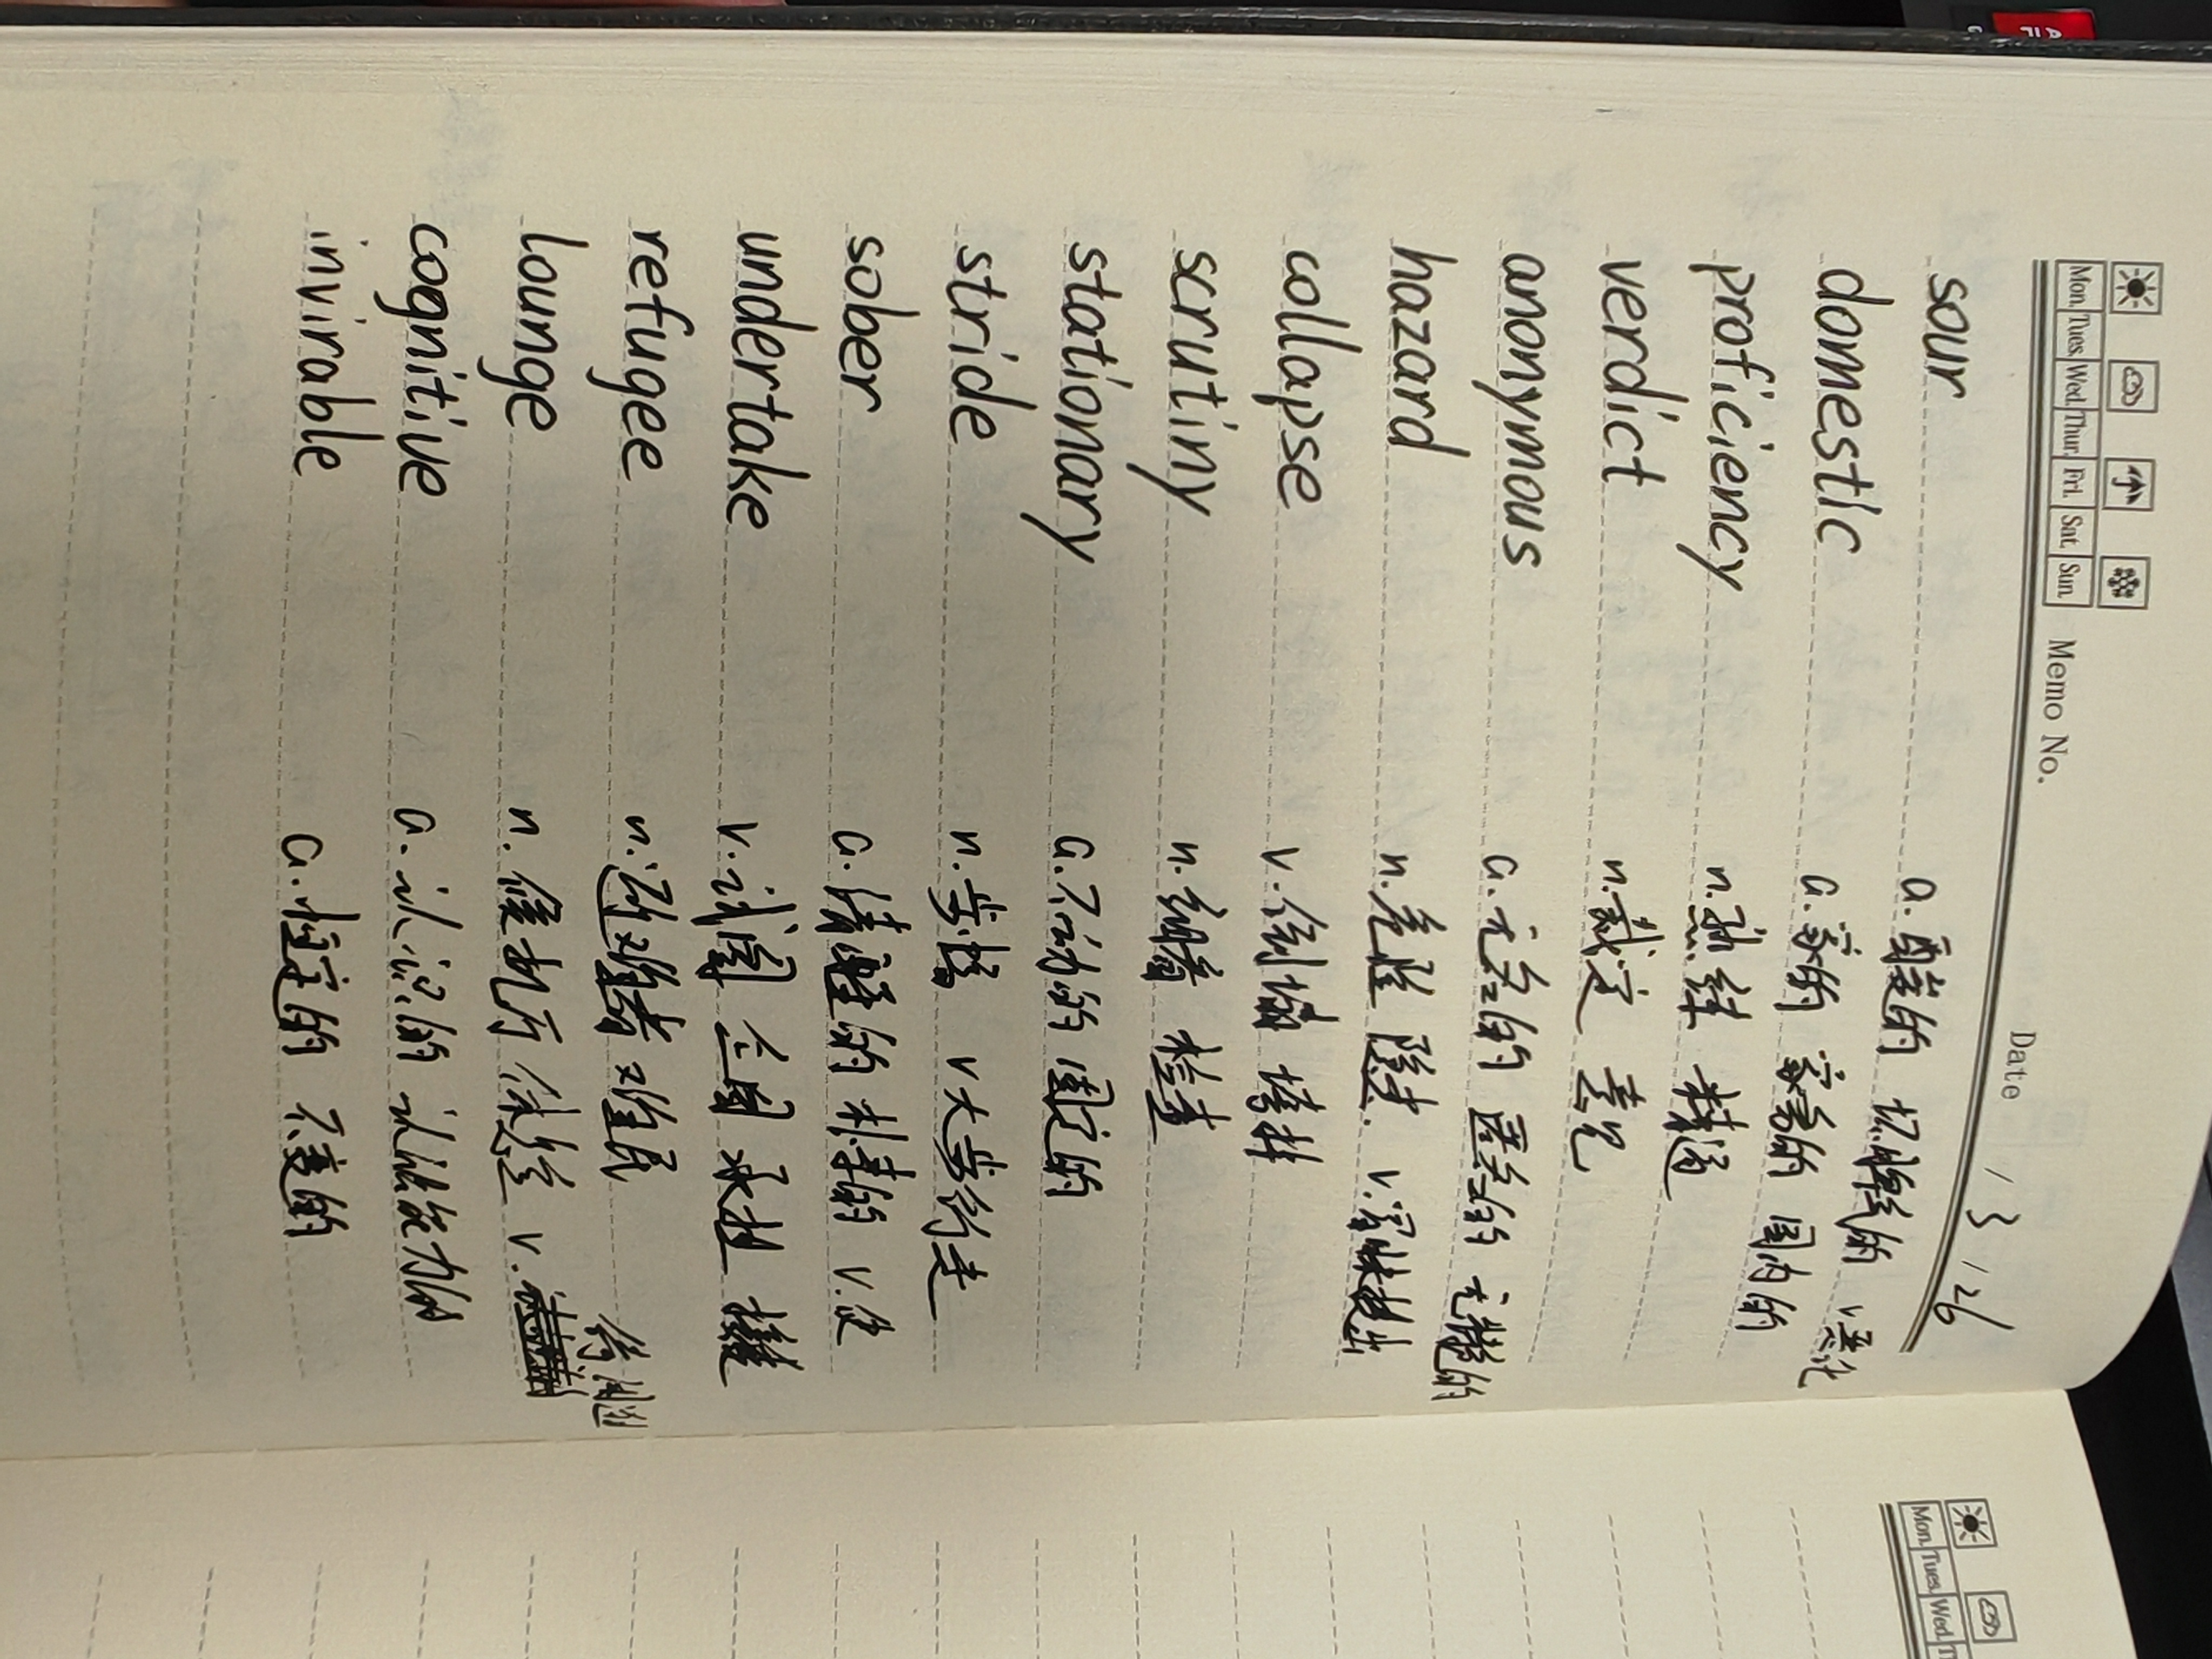 Mon. Tues. Wed. Thur. Fri. Sat. Sun. Memo No. Date / 3 / 26
sour a. 酸的 切的 v.恶化
domestic a. 家的 家务的 国内的
proficiency n. 熟练 精通
verdict n. 裁定 意见
anonymous a. 无名的 匿名的 无特色的
hazard n. 危险 隐患. v. 冒昧提出
collapse v. 倒塌 垮掉
scrutiny n. 细看 检查
stationary a. 不动的 固定的
stride n. 步幅 v 大步行走
sober a. 清醒的 朴素的 v.使
undertake v. 试图 企图 承担
refugee n. 避难者 难民
lounge n. 候机厅 休息室 v.
cognitive a. 认识的 认知能力的
invirable a. 恒定的 不变的
Mon. Tues. Wed.